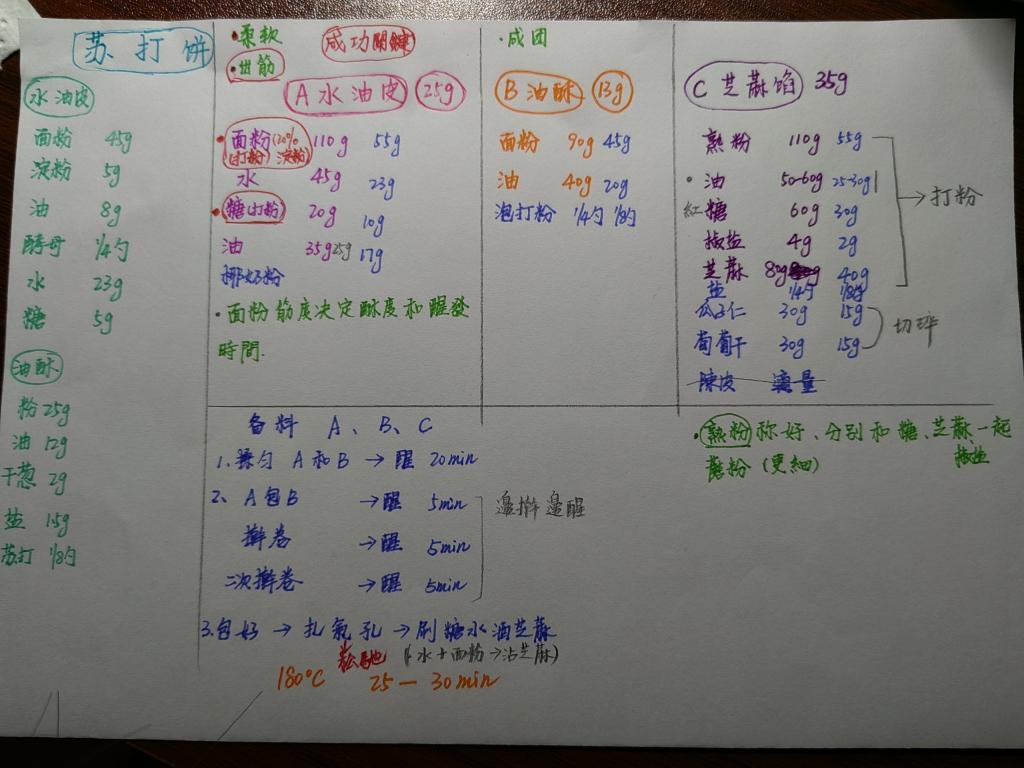 苏打饼
水油皮
面粉 45g
淀粉 5g
油 8g
酵母 1/4勺
水 23g
糖 5g
油酥
粉 25g
油 12g
干葱 2g
盐 1.5g
苏打 1/8勺
·柔软 成功關鍵
·出筋
A 水油皮 25g
·面粉(20% 110g 55g
(打粉) 淀粉)
水 45g 23g
·糖(打粉) 20g 10g
油 35g 25g 17g
挪好粉
·面粉筋度决定酥度和醒發
時間.
·成团
B 油酥 13g
面粉 90g 45g
油 40g 20g
泡打粉 1/4勺 1/8勺
C 芝蔴馅 35g
熟粉 110g 55g
·油 50-60g 25-30g
紅糖 60g 30g → 打粉
椒盐 4g 2g
芝蔴 80g 40g
盐 1/4勺 1/8勺
瓜子仁 30g 15g
葡萄干 30g 15g 切碎
陳皮 適量
备料 A、B、C
1.揉匀 A和B → 醒 20min
2、A包B → 醒 5min
擀卷 → 醒 5min
二次擀卷 → 醒 5min
邊擀邊醒
3.包好 → 扎氣孔 → 刷糖水洒芝蔴
松馳 (水+面粉→沾芝蔴)
180°C 25—30min
·熟粉称好、分别和糖、芝蔴一起
椒盐
磨粉(更細)